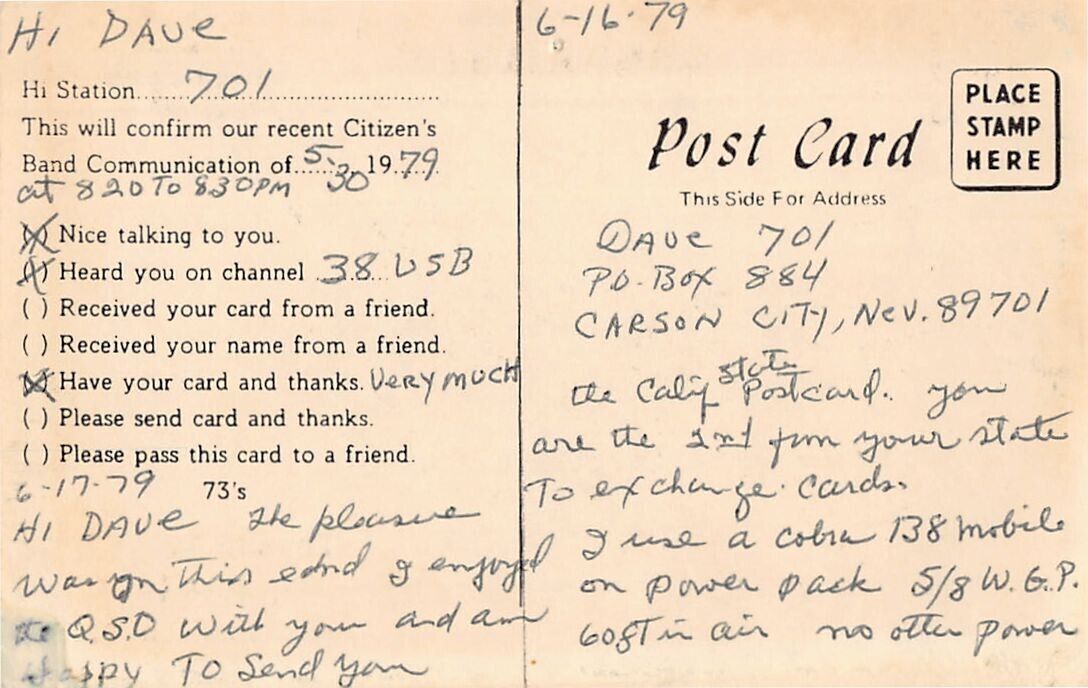 Hi DAVe
Hi Station 701
This will confirm our recent Citizen's
Band Communication of 5-30 1979
at 820 To 830PM
(X) Nice talking to you.
(X) Heard you on channel 38 USB
( ) Received your card from a friend.
( ) Received your name from a friend.
(X) Have your card and thanks. VeRY MUCH
( ) Please send card and thanks.
( ) Please pass this card to a friend.
6-17-79 73's
Hi DAVe the pleasure
was on this end I enjoyed
the Q.S.O with you and am
Happy To Send you
6-16-79
PLACE
STAMP
HERE
Post Card
This Side For Address
DAVe 701
P.O. Box 884
CARSON CiTy, NeV. 89701
the Calif State Postcard. you
are the 2nd from your state
To exchange cards.
I use a cobra 138 Mobile
on power pack 5/8 W. G.P.
60 FT in air no other power